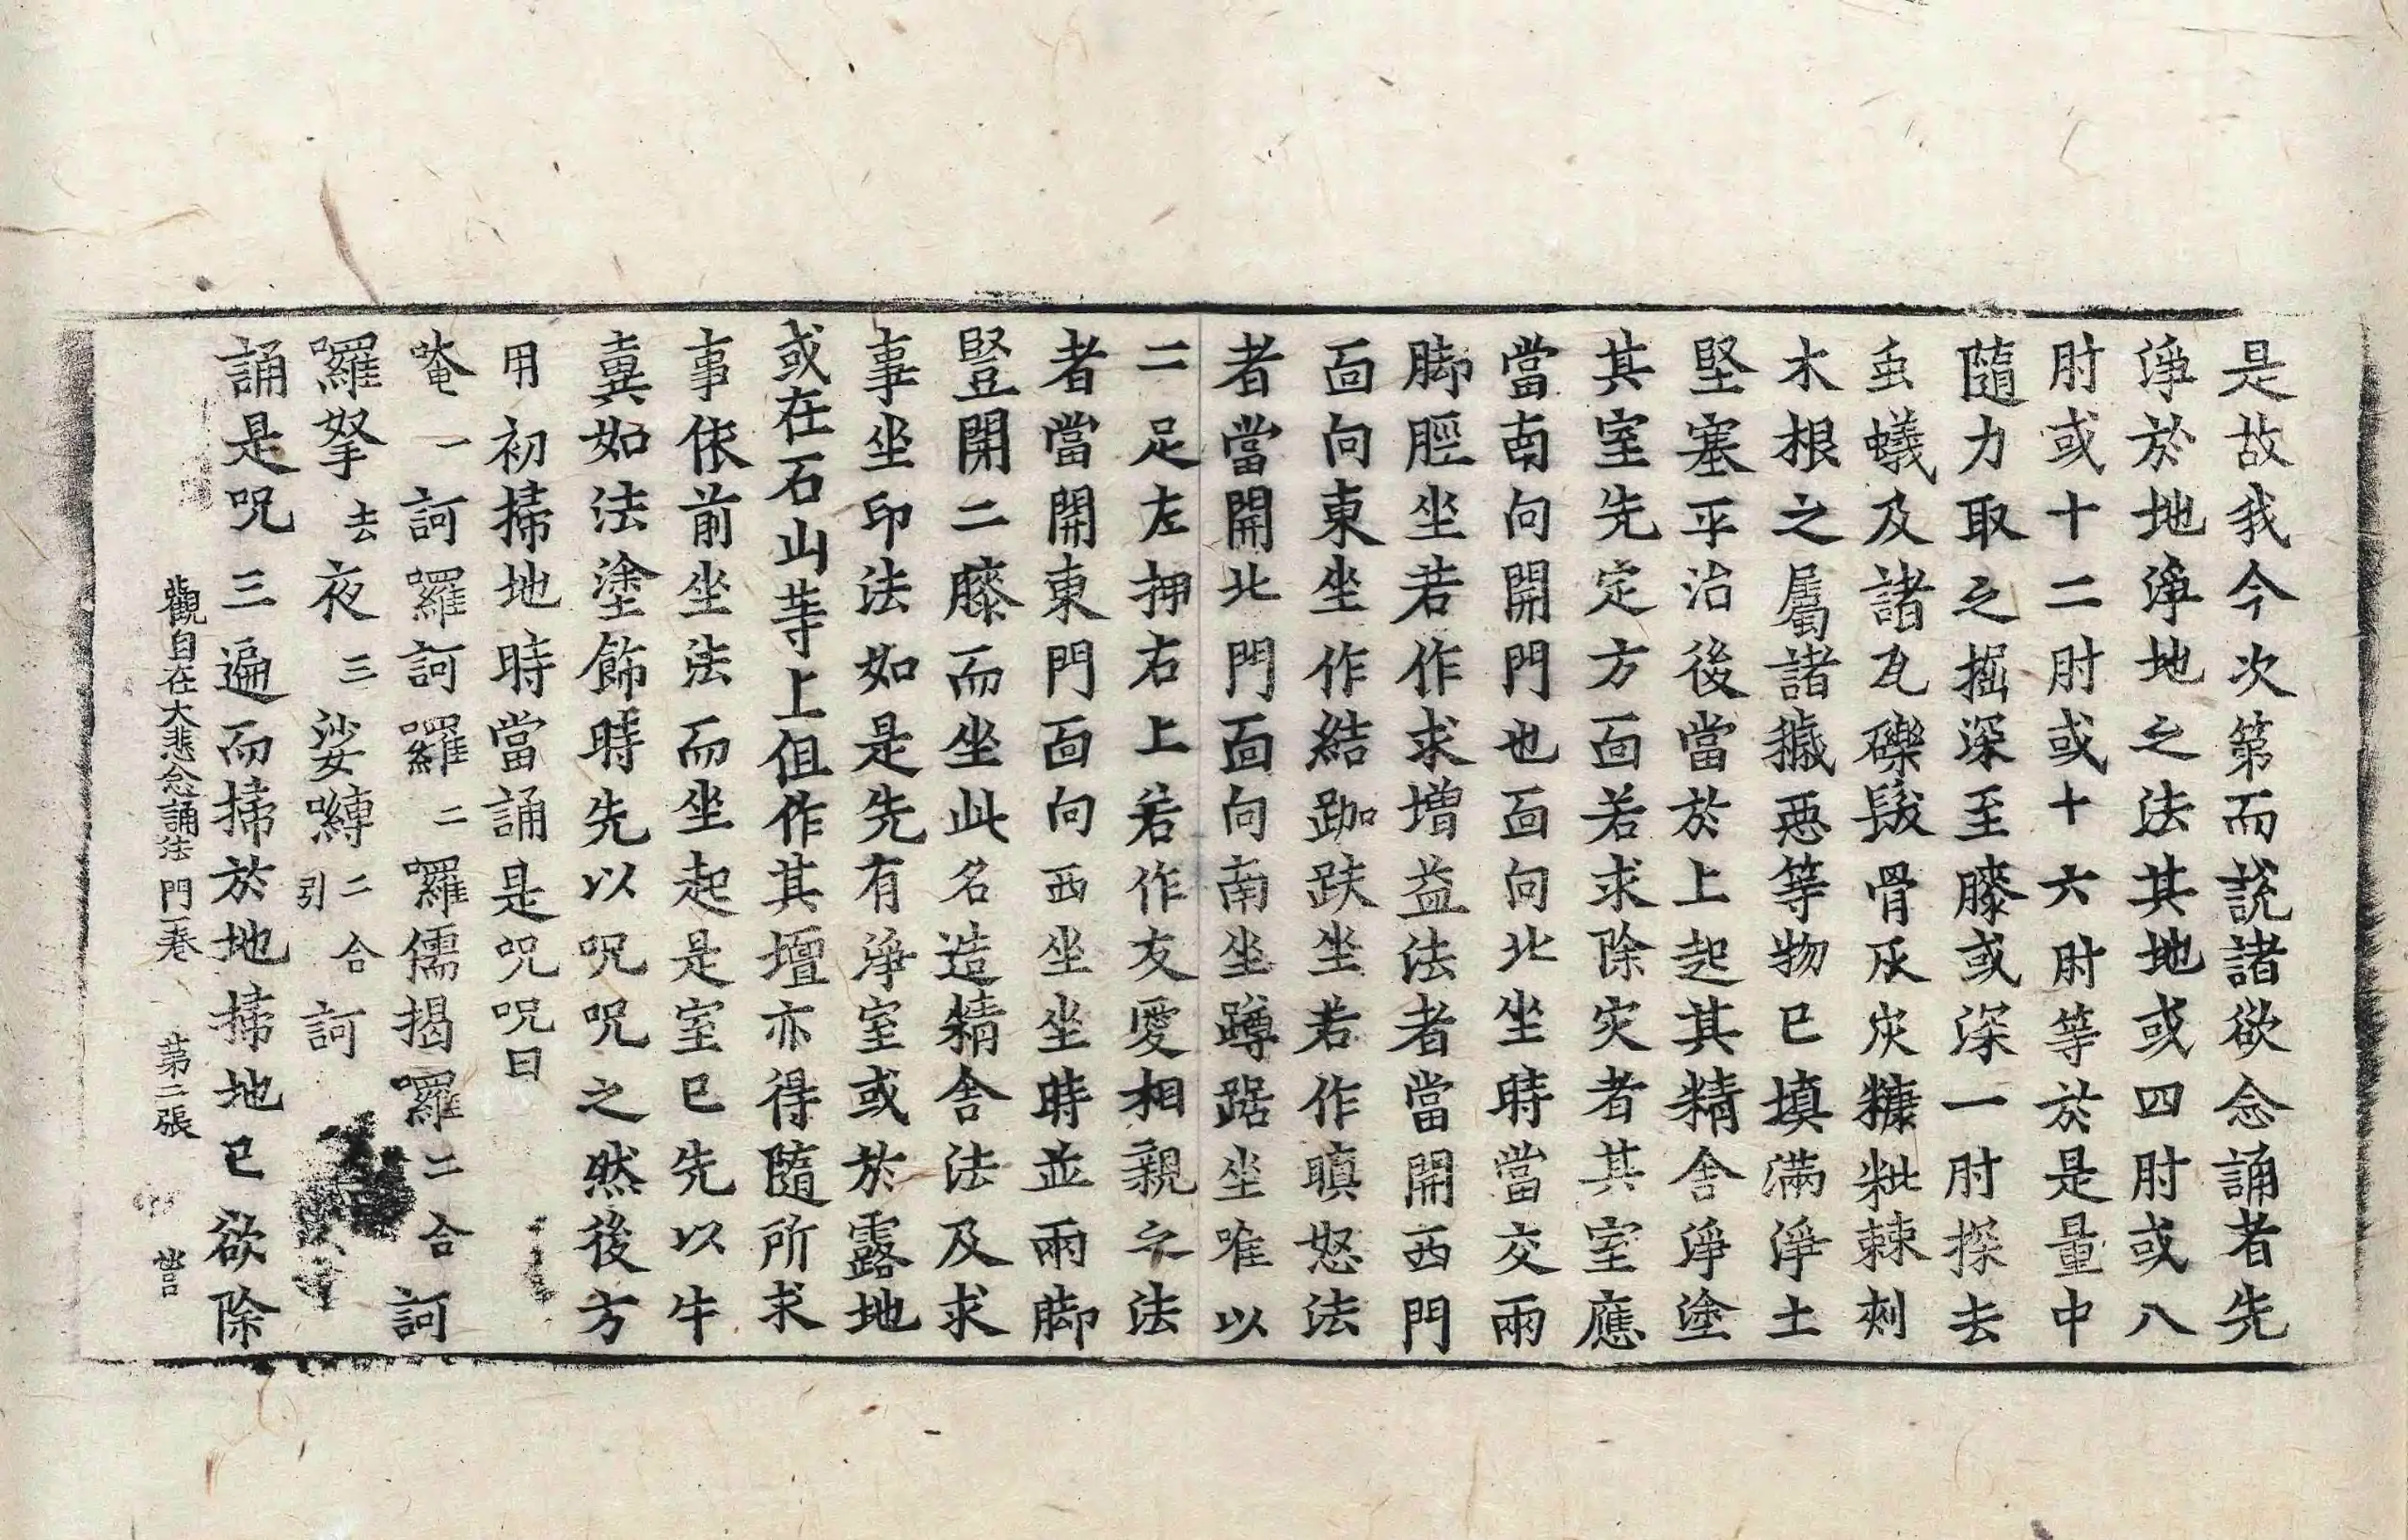 是故我今次第而説諸欲念誦者先
淨於地淨地之法其地或四肘或八
肘或十二肘或十六肘等於是量中
隨力取之掘深至膝或深一肘探去
䖝蟻及諸瓦礫髮骨灰炭糠粃棘刾
木根之屬諸穢惡等物已填滿淨土
堅塞平治後當於上起其精舍淨塗
其室先定方面若求除灾者其室應
當南向開門也面向北坐時當交兩
脚脛坐若作求增益法者當開西門
面向東坐作結跏趺坐若作瞋怒法
者當開北門面向南坐蹲踞坐唯以
二足左押右上若作友愛相親之法
者當開東門面向西坐坐時並兩脚
豎開二膝而坐此名造精舍法及求
事坐印法如是先有淨室或於露地
或在石山等上但作其壇亦得隨所求
事依前坐法而坐起是室已先以牛
糞如法塗飾時先以呪呪之然後方
用初掃地時當誦是呪呪曰
唵一訶囉訶囉二囉儒揭囉二合訶
囉拏去夜三娑嚩二合引訶
誦是呪三遍而掃於地掃地已欲除
觀自在大悲念誦法門一卷 第二張